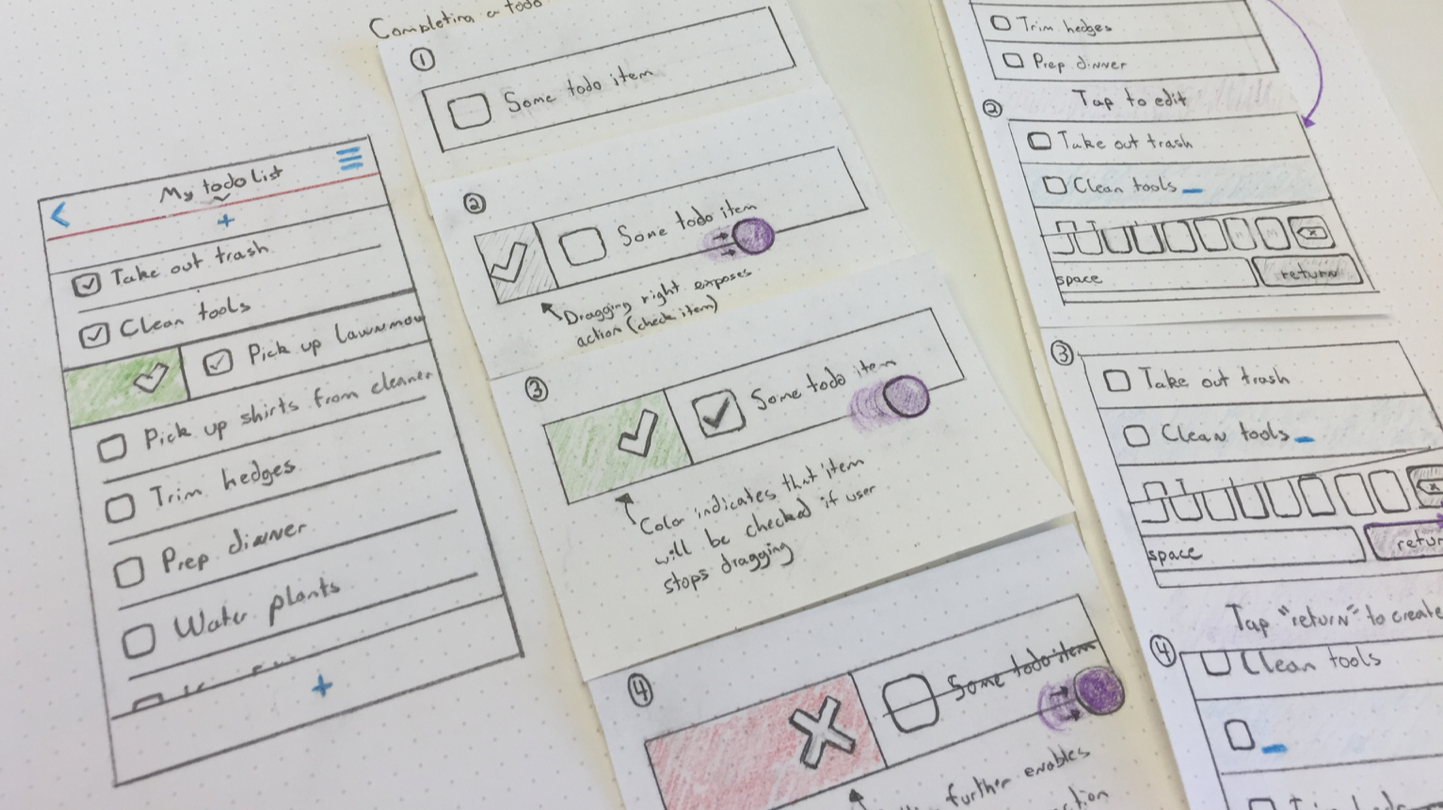 My todo list
+
Take out trash
Clean tools
Pick up lawnmow
Pick up shirts from cleaner
Trim hedges
Prep dinner
Water plants
+
Completing a todo
1
Some todo item
2
Some todo item
Dragging right exposes
action (check item)
3
Some todo item
Color indicates that item
will be checked if user
stops dragging
4
Some todo item
further enables
Trim hedges
Prep dinner
Tap to edit
2
Take out trash
Clean tools
space
return
3
Take out trash
Clean tools
space
retur
Tap "return" to create
4
Clean tools